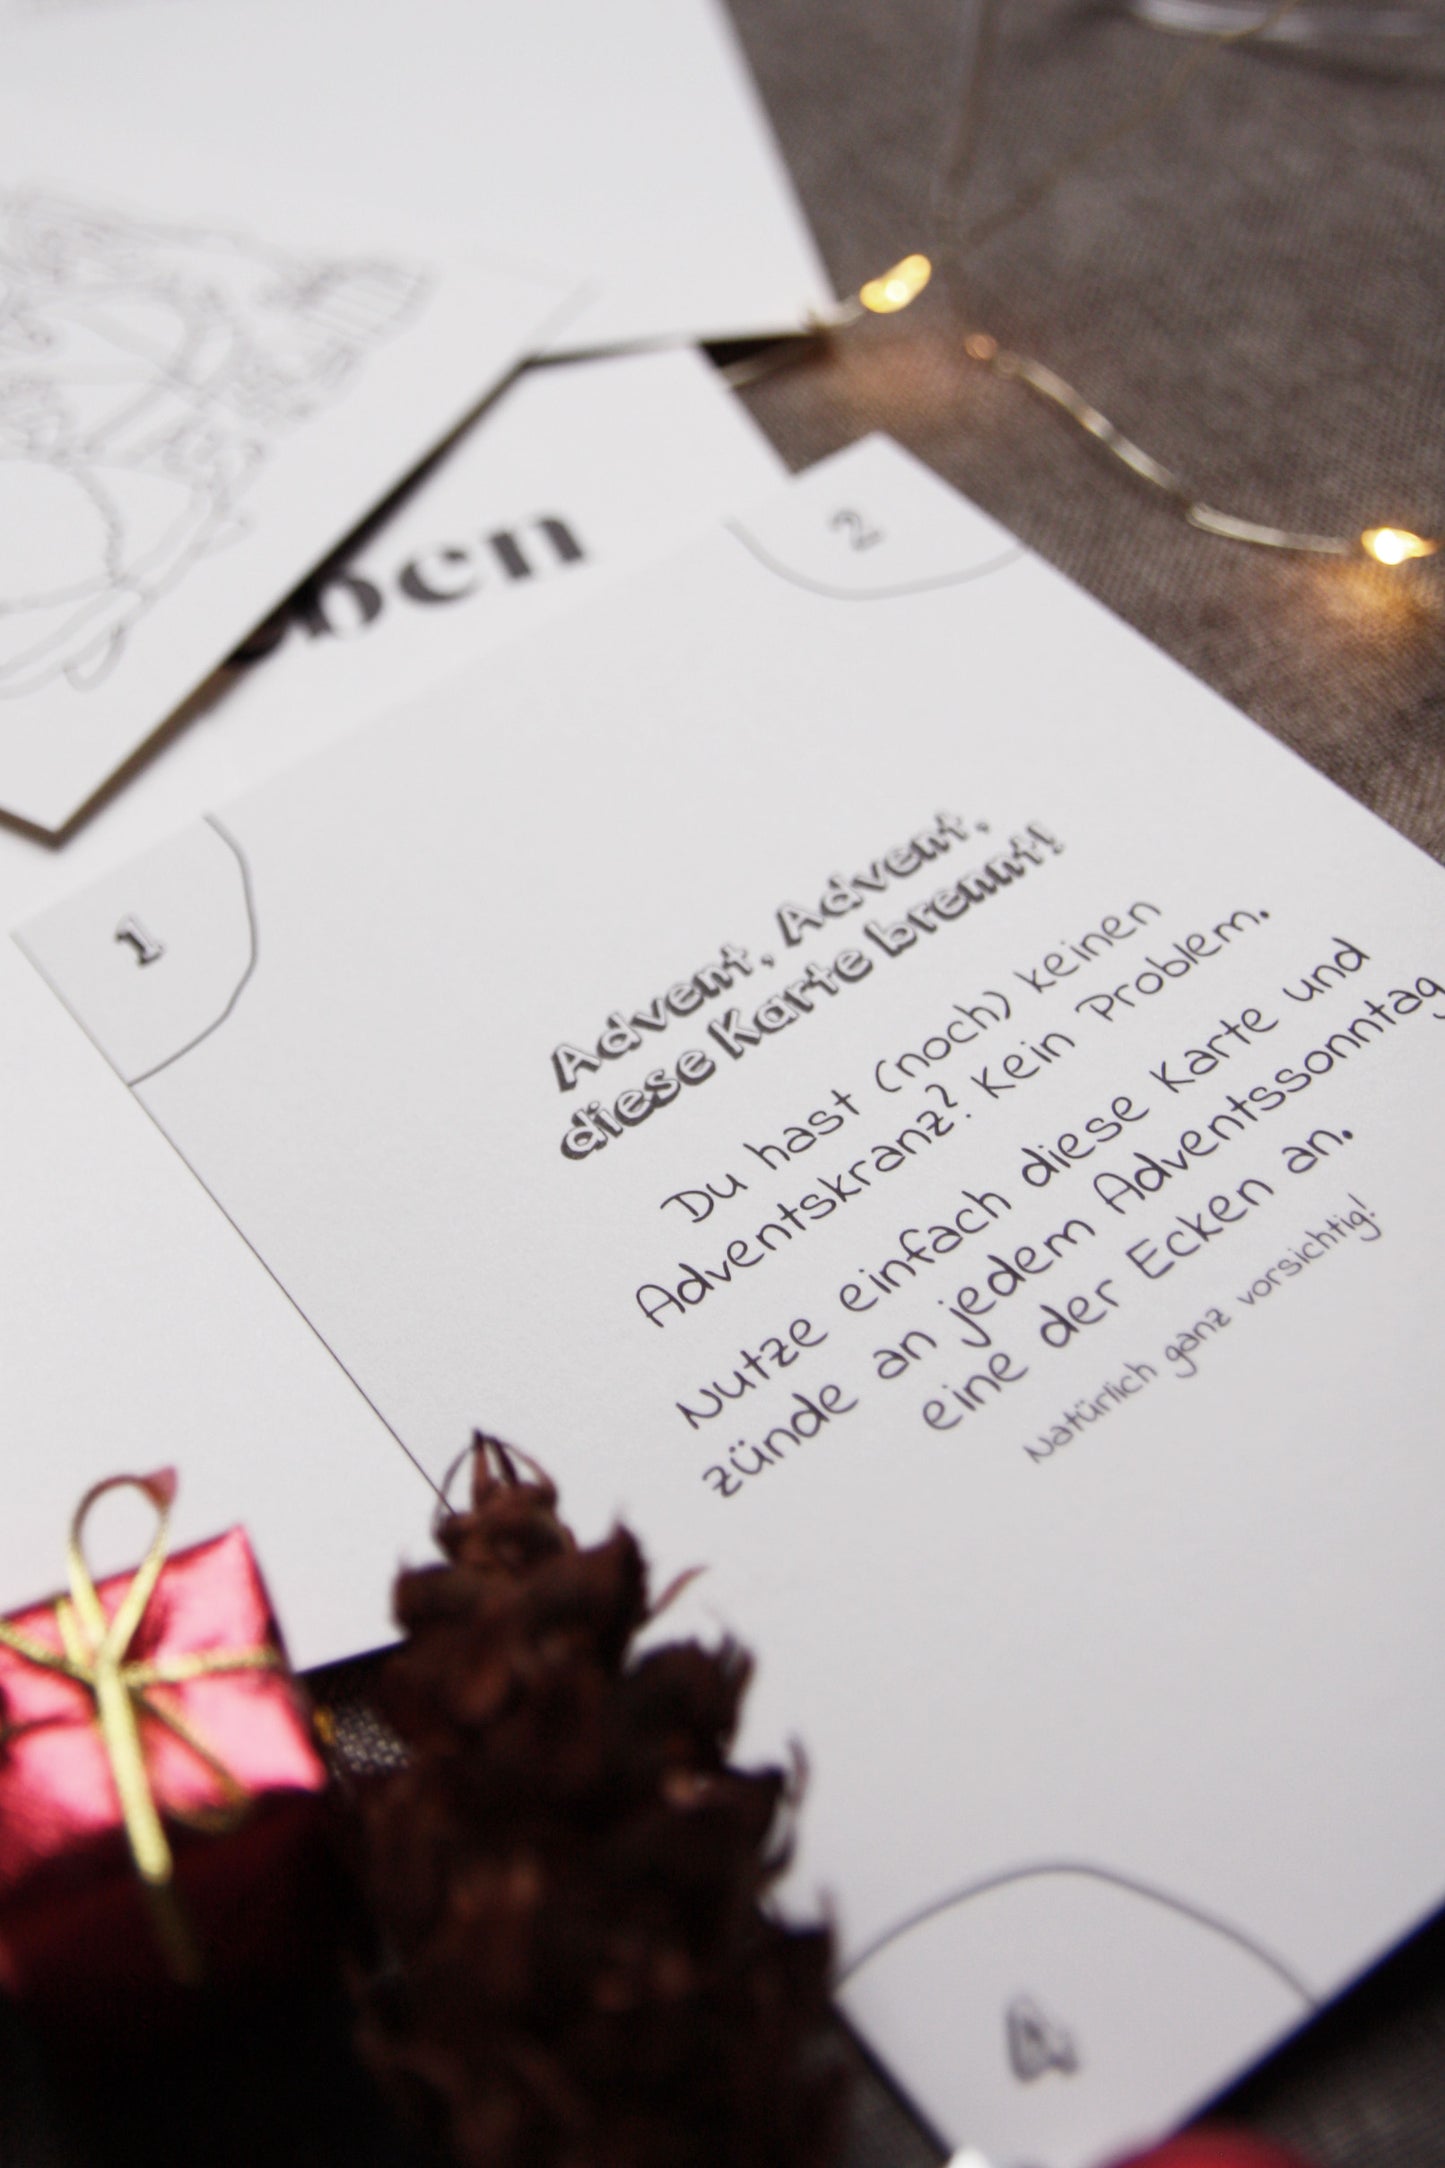 2
1
Advent, Advent,
diese Karte brennt!
Du hast (noch) keinen
Adventskranz? Kein Problem.
Nutze einfach diese Karte und
zünde an jedem Adventssonntag
eine der Ecken an.
Natürlich ganz vorsichtig!
4